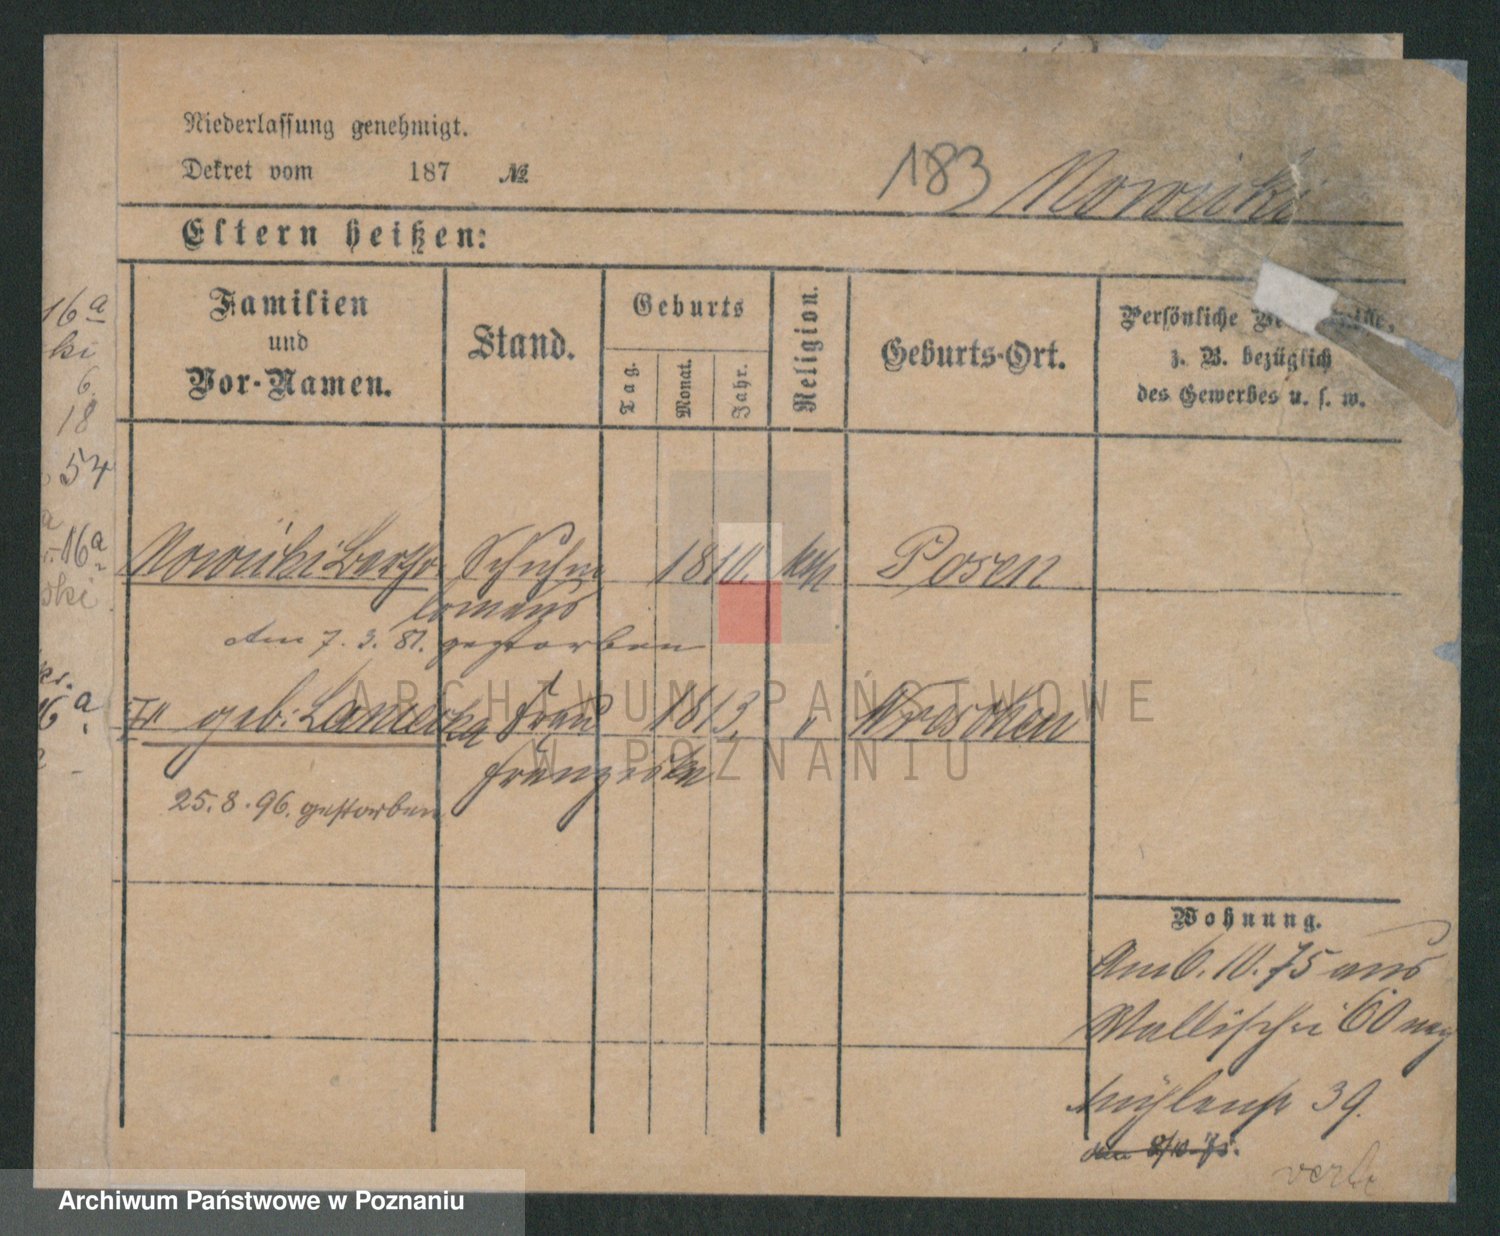 Niederlassung genehmigt.
Dekret vom 187 №
183 Nowicki
Eltern heißen:
Familien und Vor-Namen.
Stand.
Geburts
Tag.
Monat.
Jahr.
Religion.
Geburts-Ort.
Persönliche
z. B. bezüglich
des Gewerbes u. s. w.
16a
ki
6
18
54
16a
ski
6a
Nowicki Schuhm 1810. kath Posen
am 7. 3. 81. gestorben
geb: Frau 1813. " Wreschen
Franziska
25. 8. 96. gestorben
Wohnung.
Am 6. 10. 75 aus
Wallischei 60 nach
Mühlenstr 39.
den 8/10. 75.
verh
ARCHIWUM PAŃSTWOWE
W POZNANIU
Archiwum Państwowe w Poznaniu